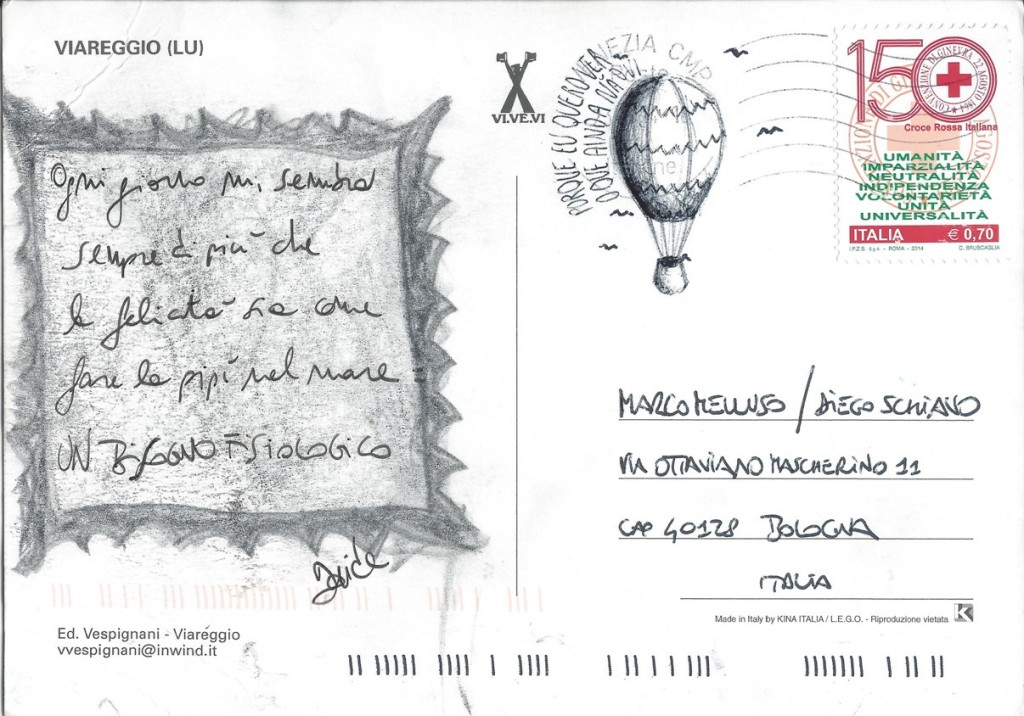 VIAREGGIO (LU)
VI.VE.VI
VENEZIA CMP
PORQUE EU QUERO VER
O QUE AINDA NÃO VI
150
CONVENZIONE DI GINEVRA 22 AGOSTO 1864
Croce Rossa Italiana
UMANITÀ
IMPARZIALITÀ
NEUTRALITÀ
INDIPENDENZA
VOLONTARIETÀ
UNITÀ
UNIVERSALITÀ
ITALIA € 0,70
I.P.Z.S. S.p.A. - ROMA - 2014 C. BRUSCAGLIA
Ogni giorno mi sembra
sempre di più che
la felicità sia come
fare la pipì nel mare
UN BISOGNO FISIOLOGICO
MARCO MELLUSO / DIEGO SCHIANO
VIA OTTAVIANO MASCHERINO 11
CAP 40128 BOLOGNA
ITALIA
Made in Italy by KINA ITALIA / L.E.G.O. - Riproduzione vietata
K
Ed. Vespignani - Viareggio
vvespignani@inwind.it